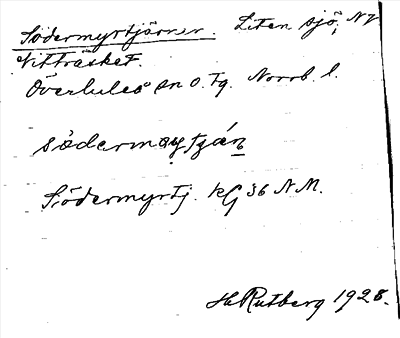 Södermyrtjärnen. Liten sjö, NV
Vitträsket.
Överluleå sn o. tg. Norrb. l.
södermyrtjän
Södermyrtj. kG 36 N.M.
H Rutberg 1928.